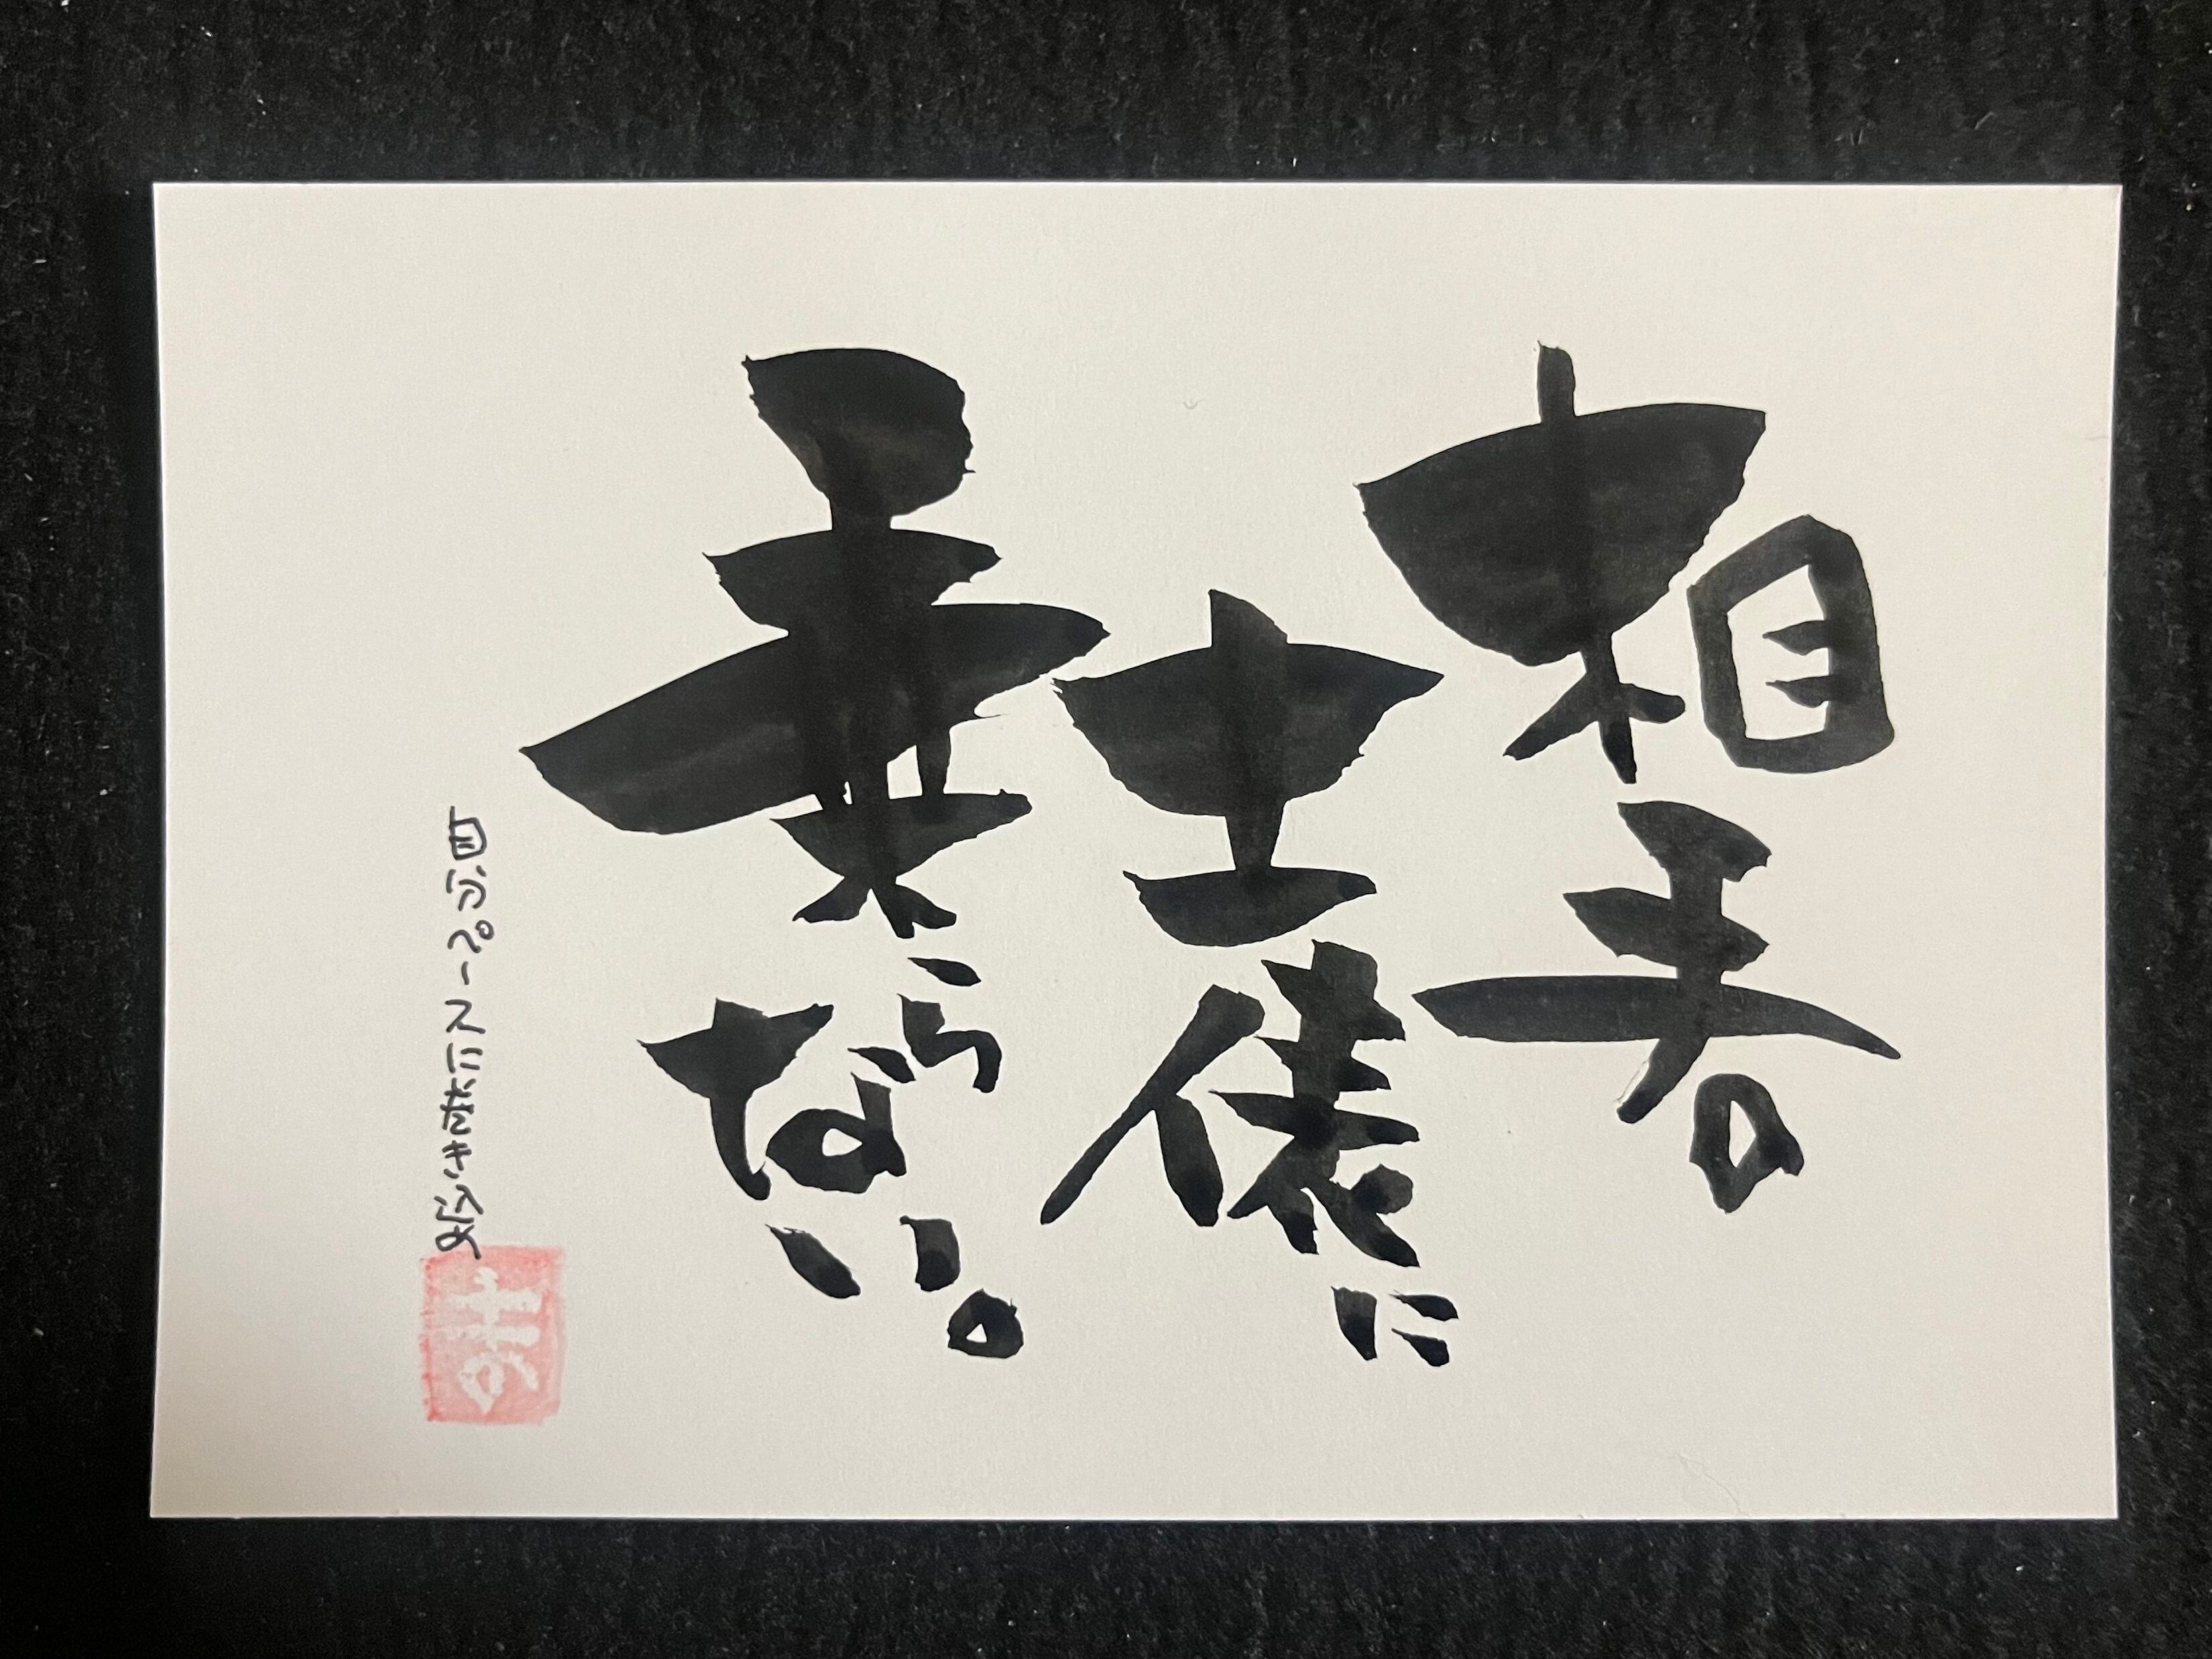 相手の
土俵に
乗らない。
自分ペースに巻き込め